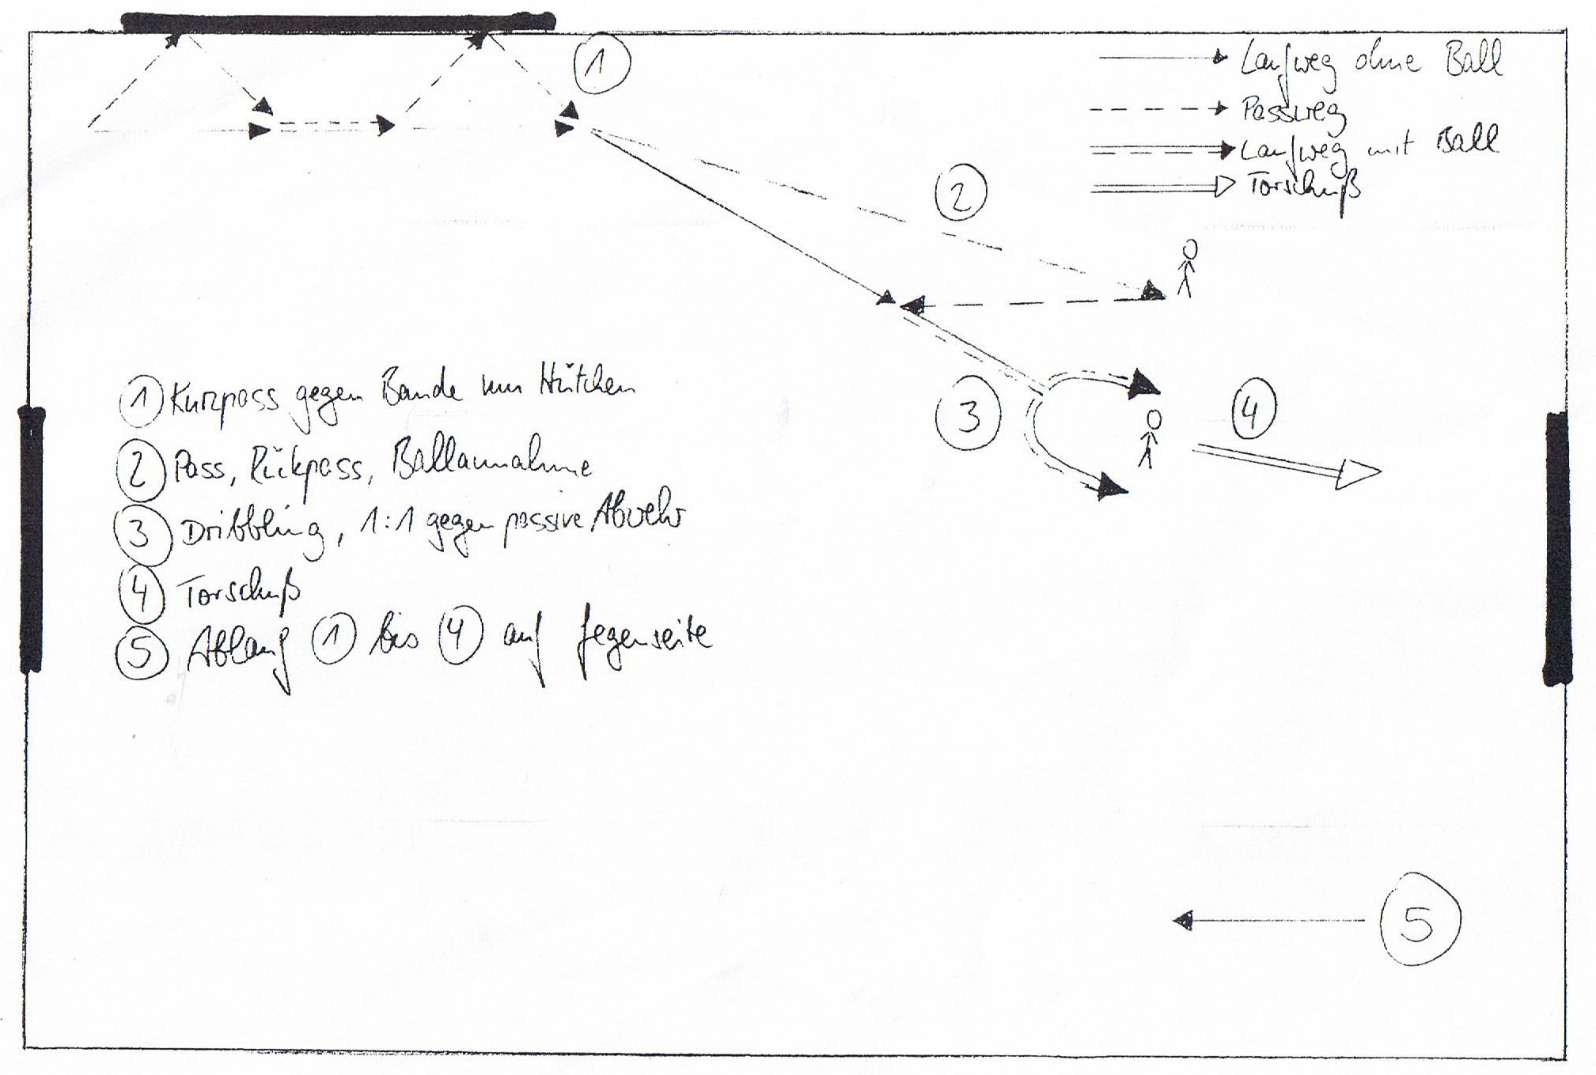 1
Laufweg ohne Ball
Passweg
Laufweg mit Ball
Torschuß
2
3
4
1 Kurzpass gegen Bande um Hütchen
2 Pass, Rückpass, Ballannahme
3 Dribbling, 1:1 gegen passive Abwehr
4 Torschuß
5 Ablauf 1 bis 4 auf Gegenseite
5